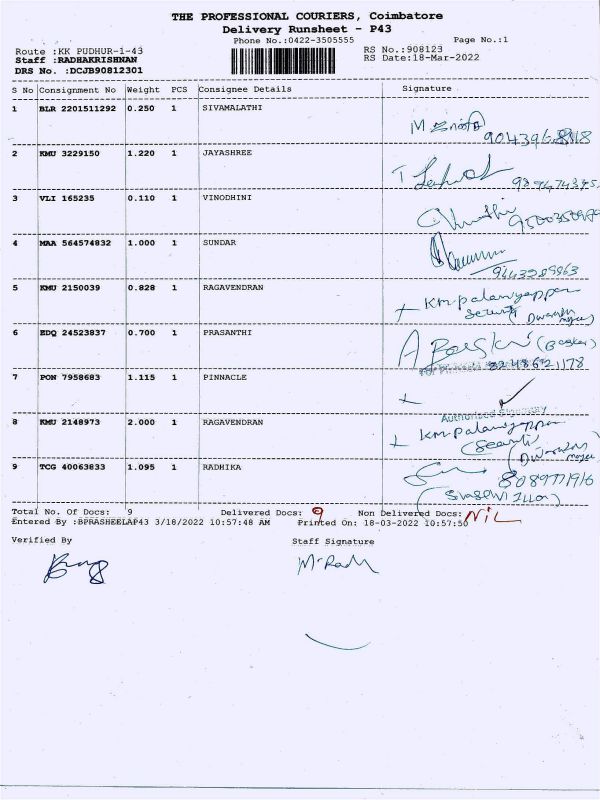 THE PROFESSIONAL COURIERS, Coimbatore
Delivery Runsheet - P43
Phone No.:0422-3505555 Page No.:1
Route :KK PUDHUR-1-43 RS No.:908123
Staff :RADHAKRISHNAN RS Date:18-Mar-2022
DRS No. :DCJB90812301
S No Consignment No Weight PCS Consignee Details Signature
1 BLR 2201511292 0.250 1 SIVAMALATHI
2 KMU 3229150 1.220 1 JAYASHREE
3 VLI 165235 0.110 1 VINODHINI
4 MAA 564574832 1.000 1 SUNDAR
9443289863
5 KMU 2150039 0.828 1 RAGAVENDRAN
KM-palaniyappan
6 EDQ 24523837 0.700 1 PRASANTHI
(Baskar)
7 PON 7958683 1.115 1 PINNACLE
Authorised Signatory
8 KMU 2148973 2.000 1 RAGAVENDRAN
KM-palaniyappan
9 TCG 40063833 1.095 1 RADHIKA
Total No. Of Docs: 9 Delivered Docs: 9 Non Delivered Docs: NIL
Entered By :BPRASHEELAP43 3/18/2022 10:57:48 AM Printed On: 18-03-2022 10:57:50
Verified By Staff Signature